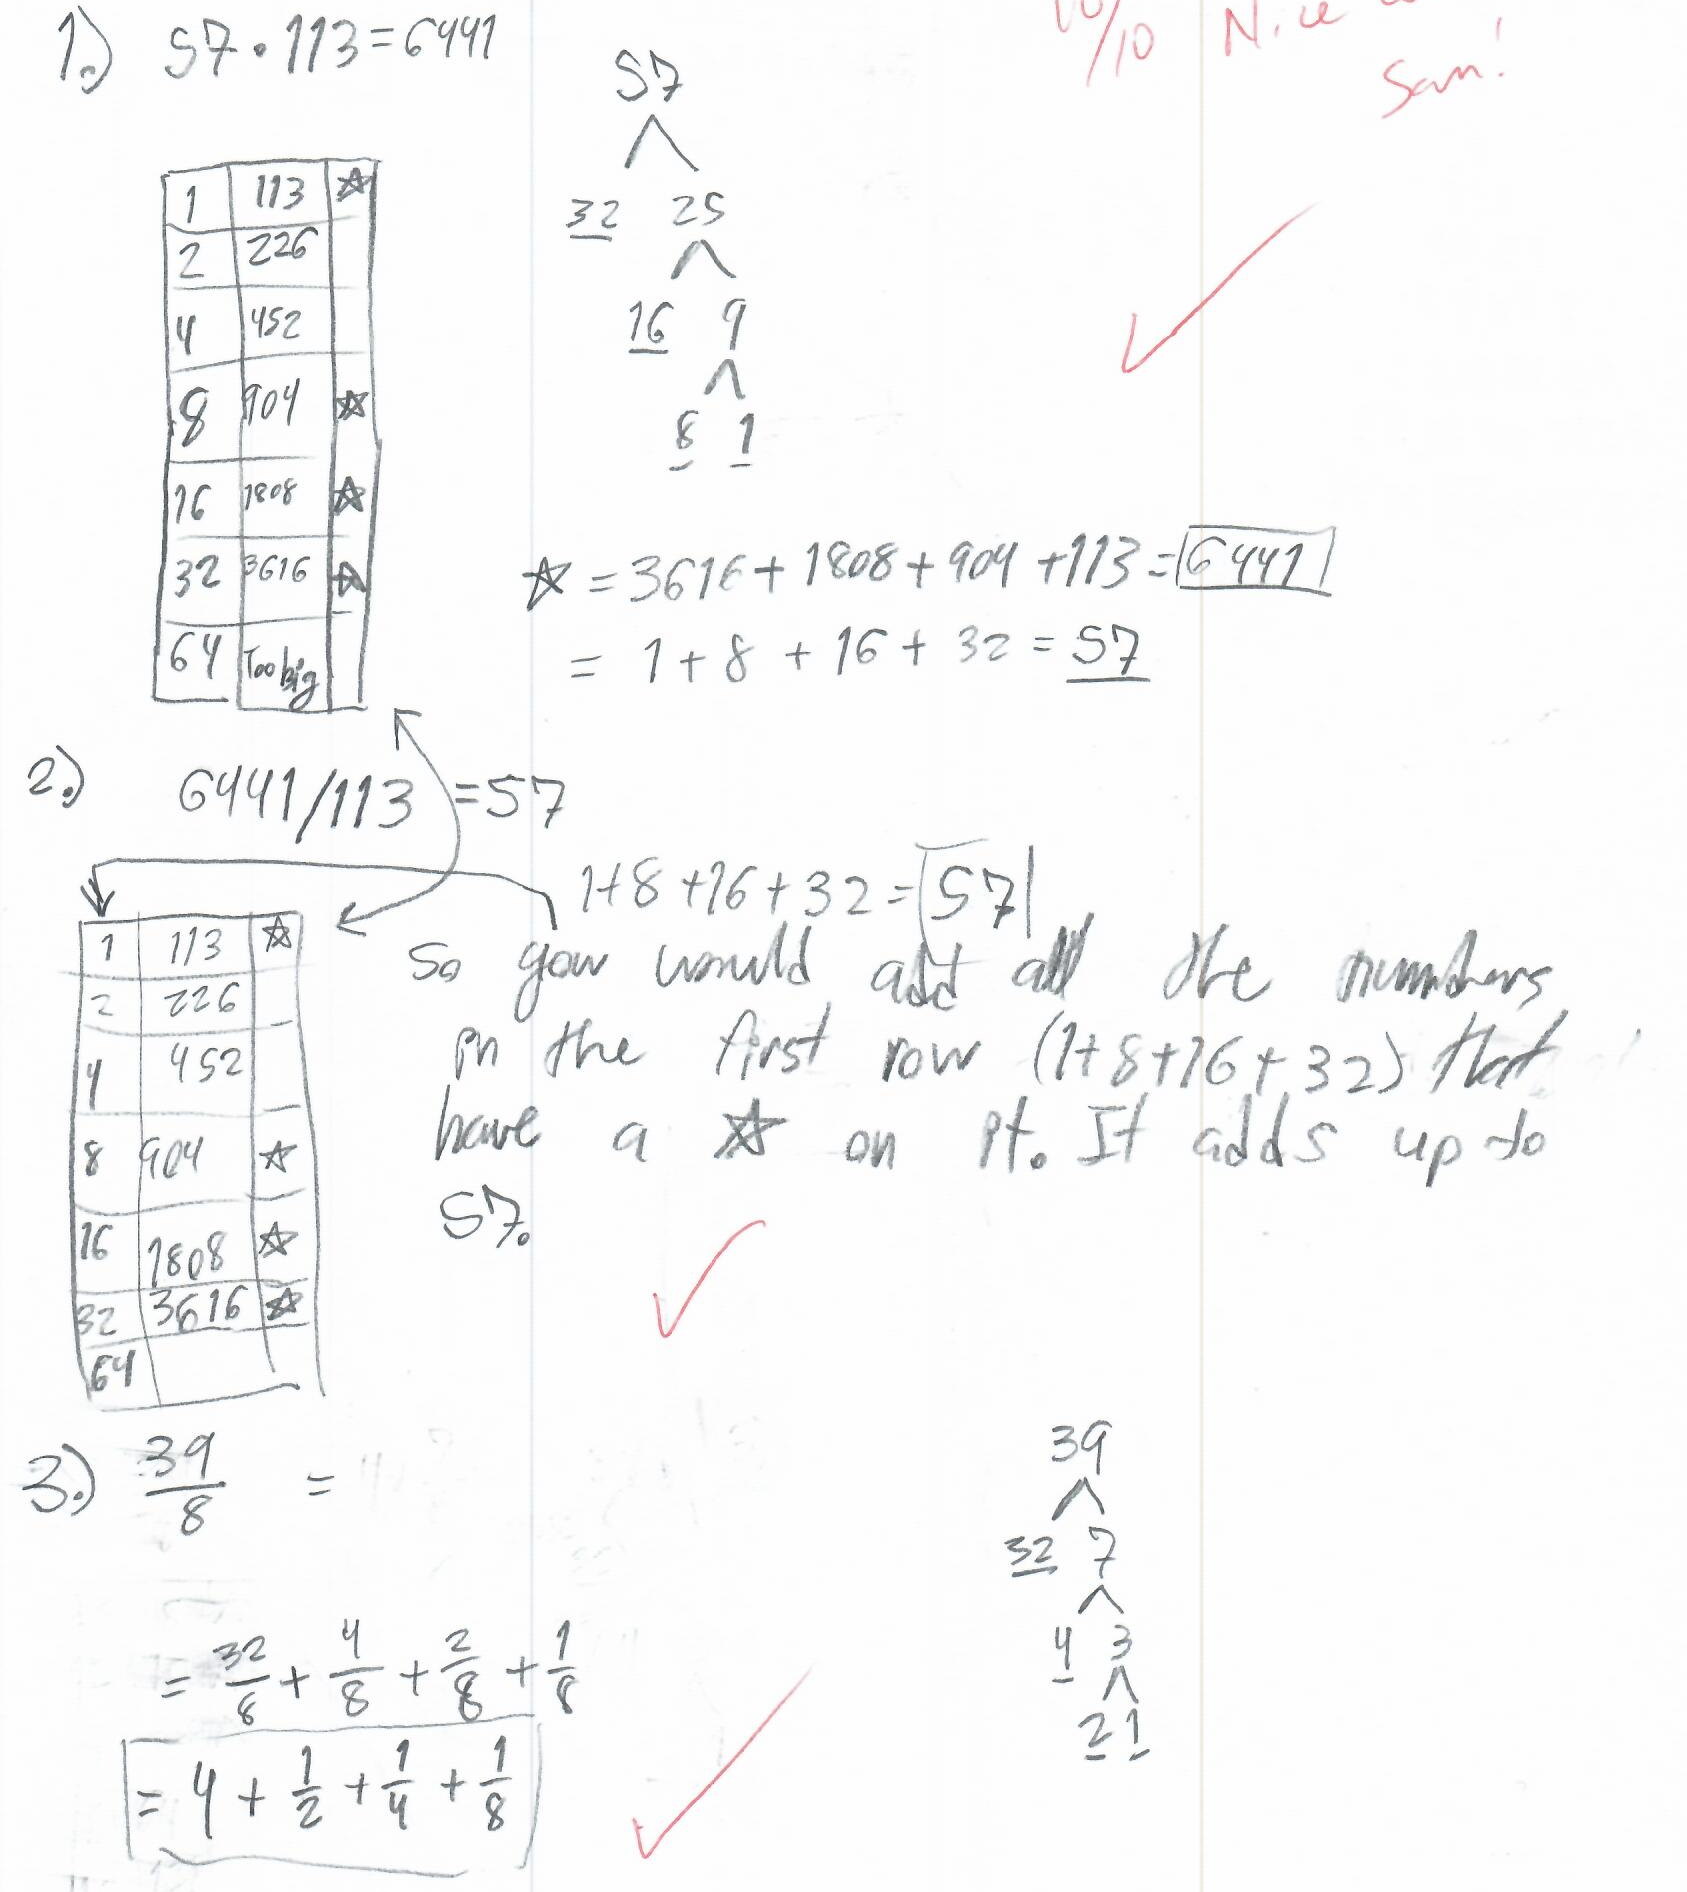 10/10 Nice
Sam!
1.) 57 · 113 = 6441
57
32 25
16 9
8 1
1 113 ☆
2 226
4 452
8 904 ☆
16 1808 ☆
32 3616 ☆
64 Too big
☆ = 3616 + 1808 + 904 + 113 = 6441
= 1 + 8 + 16 + 32 = 57
2.) 6441/113 = 57
1 + 8 + 16 + 32 = 57
1 113 ☆
2 226
4 452
8 904 ☆
16 1808 ☆
32 3616 ☆
64
So you would add all the numbers
in the first row (1+8+16+32) that
have a ☆ on it. It adds up to
57.
3.) 39/8 =
39
32 7
4 3
2 1
= 32/8 + 4/8 + 2/8 + 1/8
= 4 + 1/2 + 1/4 + 1/8